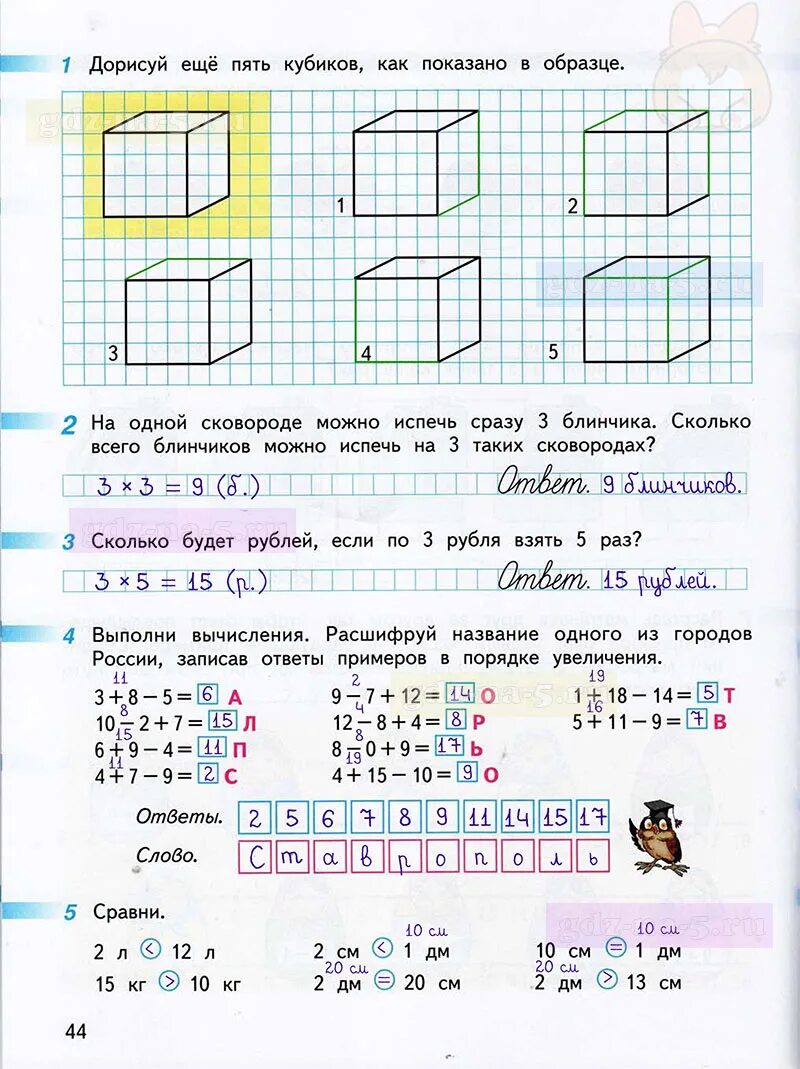 1 Дорисуй ещё пять кубиков, как показано в образце.
gdz-na-5.ru
1
2
gdz-na-5.ru
3
4
5
2 На одной сковороде можно испечь сразу 3 блинчика. Сколько
всего блинчиков можно испечь на 3 таких сковородах?
3 × 3 = 9 (б.) Ответ. 9 блинчиков.
gdz-na-5.ru
3 Сколько будет рублей, если по 3 рубля взять 5 раз?
3 × 5 = 15 (р.) Ответ. 15 рублей.
4 Выполни вычисления. Расшифруй название одного из городов
России, записав ответы примеров в порядке увеличения.
11 2 19
3 + 8 − 5 = 6 А 9 − 7 + 12 = 14 О 1 + 18 − 14 = 5 Т
gdz-na-5.ru
8 4 16
10 − 2 + 7 = 15 Л 12 − 8 + 4 = 8 Р 5 + 11 − 9 = 7 В
15 8
6 + 9 − 4 = 11 П 8 − 0 + 9 = 17 Ь
11 19
4 + 7 − 9 = 2 С 4 + 15 − 10 = 9 О
Ответы. 2 5 6 7 8 9 11 14 15 17
Слово. С т а в р о п о л ь
5 Сравни.
gdz-na-5.ru
10 см 10 см
2 л < 12 л 2 см < 1 дм 10 см = 1 дм
20 см 20 см
15 кг > 10 кг 2 дм = 20 см 2 дм > 13 см
44